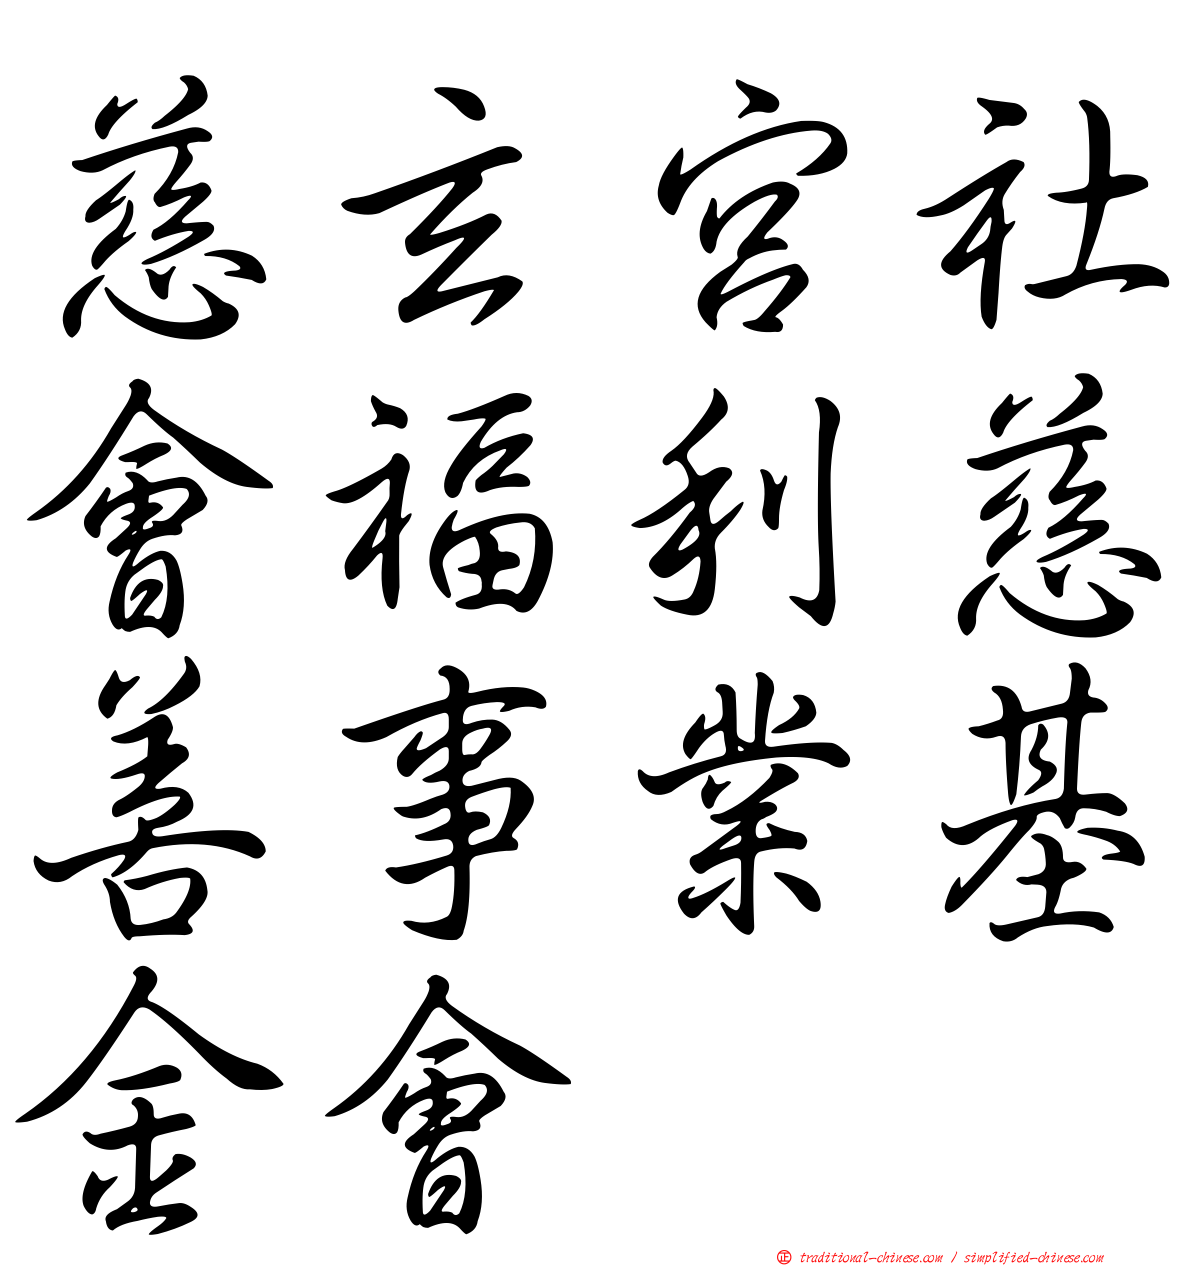 慈玄宮社
會福利慈
善事業基
金會
正 traditional-chinese.com / simplified-chinese.com